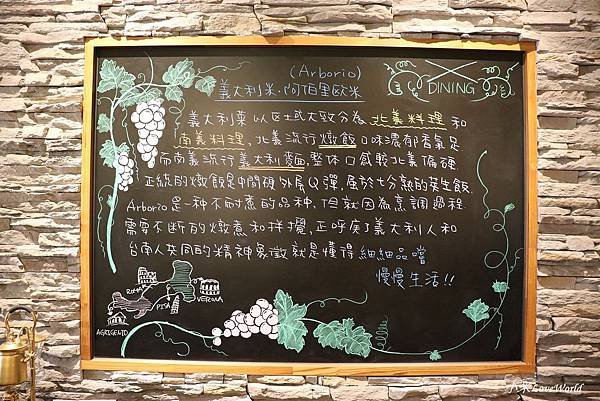 (Arborio)
義大利米‧阿伯里歐米
DINING
義大利菜以區域大致分為北義料理和
南義料理,北義流行燉飯口味濃郁香氣足
而南義流行義大利麵,整体口感較北義偏硬.
正統的燉飯是中間硬外层Q彈,屬於七分熟的夾生飯.
Arborio是一种不耐煮的品种,但就因為烹調過程
需要不斷的燉煮和拌攪,正呼应了義大利人和
台南人共同的精神象徵就是懂得細細品嚐
慢慢生活!!
ROMA
PISA
VERONA
AGRIGENTO
LoveWorld